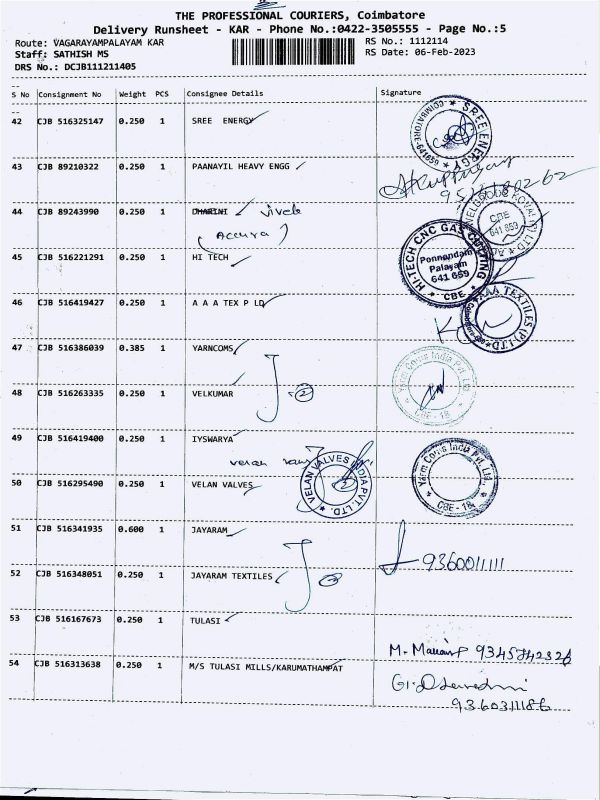 THE PROFESSIONAL COURIERS, Coimbatore
Delivery Runsheet - KAR - Phone No.:0422-3505555 - Page No.:5
Route: VAGARAYAMPALAYAM KAR
RS No.: 1112114
Staff: SATHISH MS
RS Date: 06-Feb-2023
DRS No.: DCJB111211405
S No Consignment No Weight PCS Consignee Details Signature
42 CJB 516325147 0.250 1 SREE ENERGY
SREE ENERGY
COIMBATORE-641659
43 CJB 89210322 0.250 1 PAANAYIL HEAVY ENGG
44 CJB 89243990 0.250 1 DHARINI
CBE
641 659
45 CJB 516221291 0.250 1 HI TECH
HI-TECH CNC GAS CUTTING
Ponnandam
Palayam
641 659
CBE
46 CJB 516419427 0.250 1 A A A TEX P LD
AAA TEXTILES (P) LTD.
47 CJB 516386039 0.385 1 YARNCOMS
Yarn Coms India Pvt. Ltd.
CBE - 18
48 CJB 516263335 0.250 1 VELKUMAR
2
49 CJB 516419400 0.250 1 IYSWARYA
velan
50 CJB 516295490 0.250 1 VELAN VALVES
VELAN VALVES INDIA PVT. LTD.
Yarn Coms India Pvt. Ltd.
CBE - 18
51 CJB 516341935 0.600 1 JAYARAM
9360011111
52 CJB 516348051 0.250 1 JAYARAM TEXTILES
53 CJB 516167673 0.250 1 TULASI
54 CJB 516313638 0.250 1 M/S TULASI MILLS/KARUMATHAMPAT
9360311186